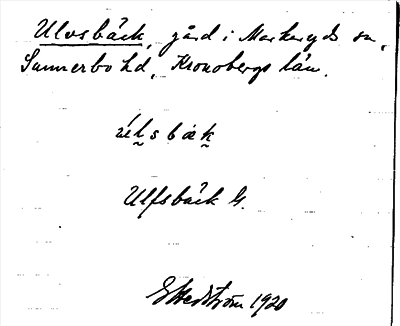 Ulvsbäck, gård i Markaryds sn,
Sunnerbo hd, Kronobergs län.
Ulfsbäck G.
G Hedström 1920